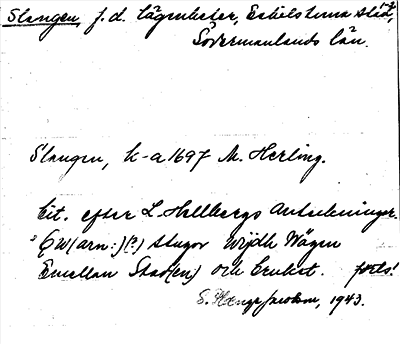 Slangen, f.d. lägenheter, Eskilstuna stad,
Södermanlands län.
Slangen, k-a 1697 M. Herling.
Cit. efter L. Hellbergs Anteckningar.
Qw(arn:)(?) stugor wijdh Wägen
Emellan Stad(en) och
forts!
S. 1943.